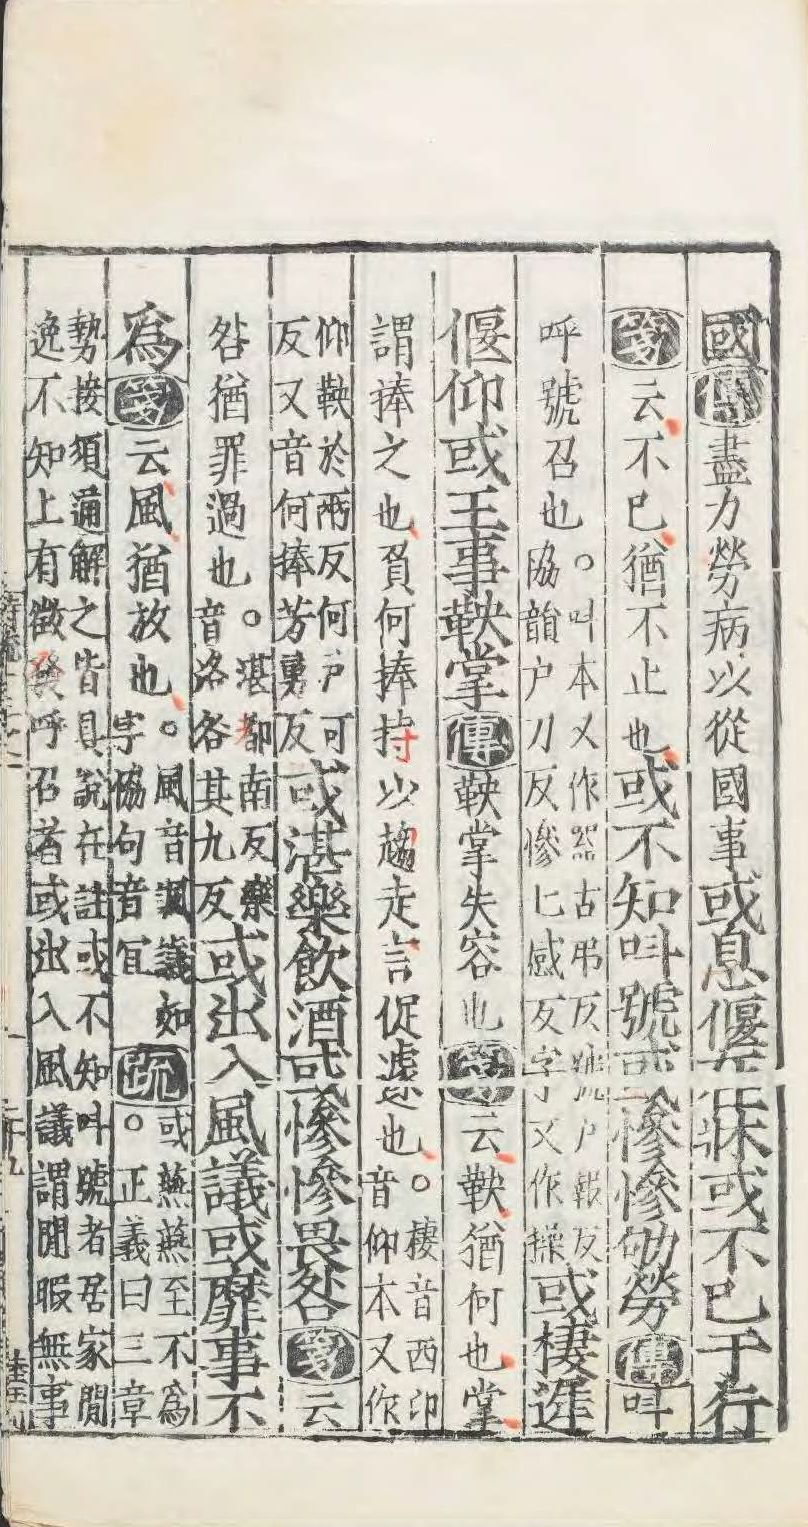 國傳盡力勞病以從國事或息偃在牀或不已于行
箋云不已猶不止也或不知叫號或慘慘劬勞傳叫
呼號召也○叫本又作嘂古弔反號戶報反
協韻戶刀反慘七感反字又作懆或棲遲
偃仰或王事鞅掌傳鞅掌失容也箋云鞅猶何也掌
謂捧之也負何捧持以趨走言促遽也○棲音西卬
音仰本又作
仰鞅於兩反何戶可
反又音何捧芳勇反或湛樂飲酒或慘慘畏咎箋云
咎猶罪過也○湛都南反樂
音洛咎其九反或出入風議或靡事不
為箋云風猶放也○風音諷議如
字協句音宜疏或燕燕至不為
○正義曰三章
勢接須通解之皆具說在註或不知叫號者居家閒
逸不知上有徵發呼召者或出入風議謂閒暇無事